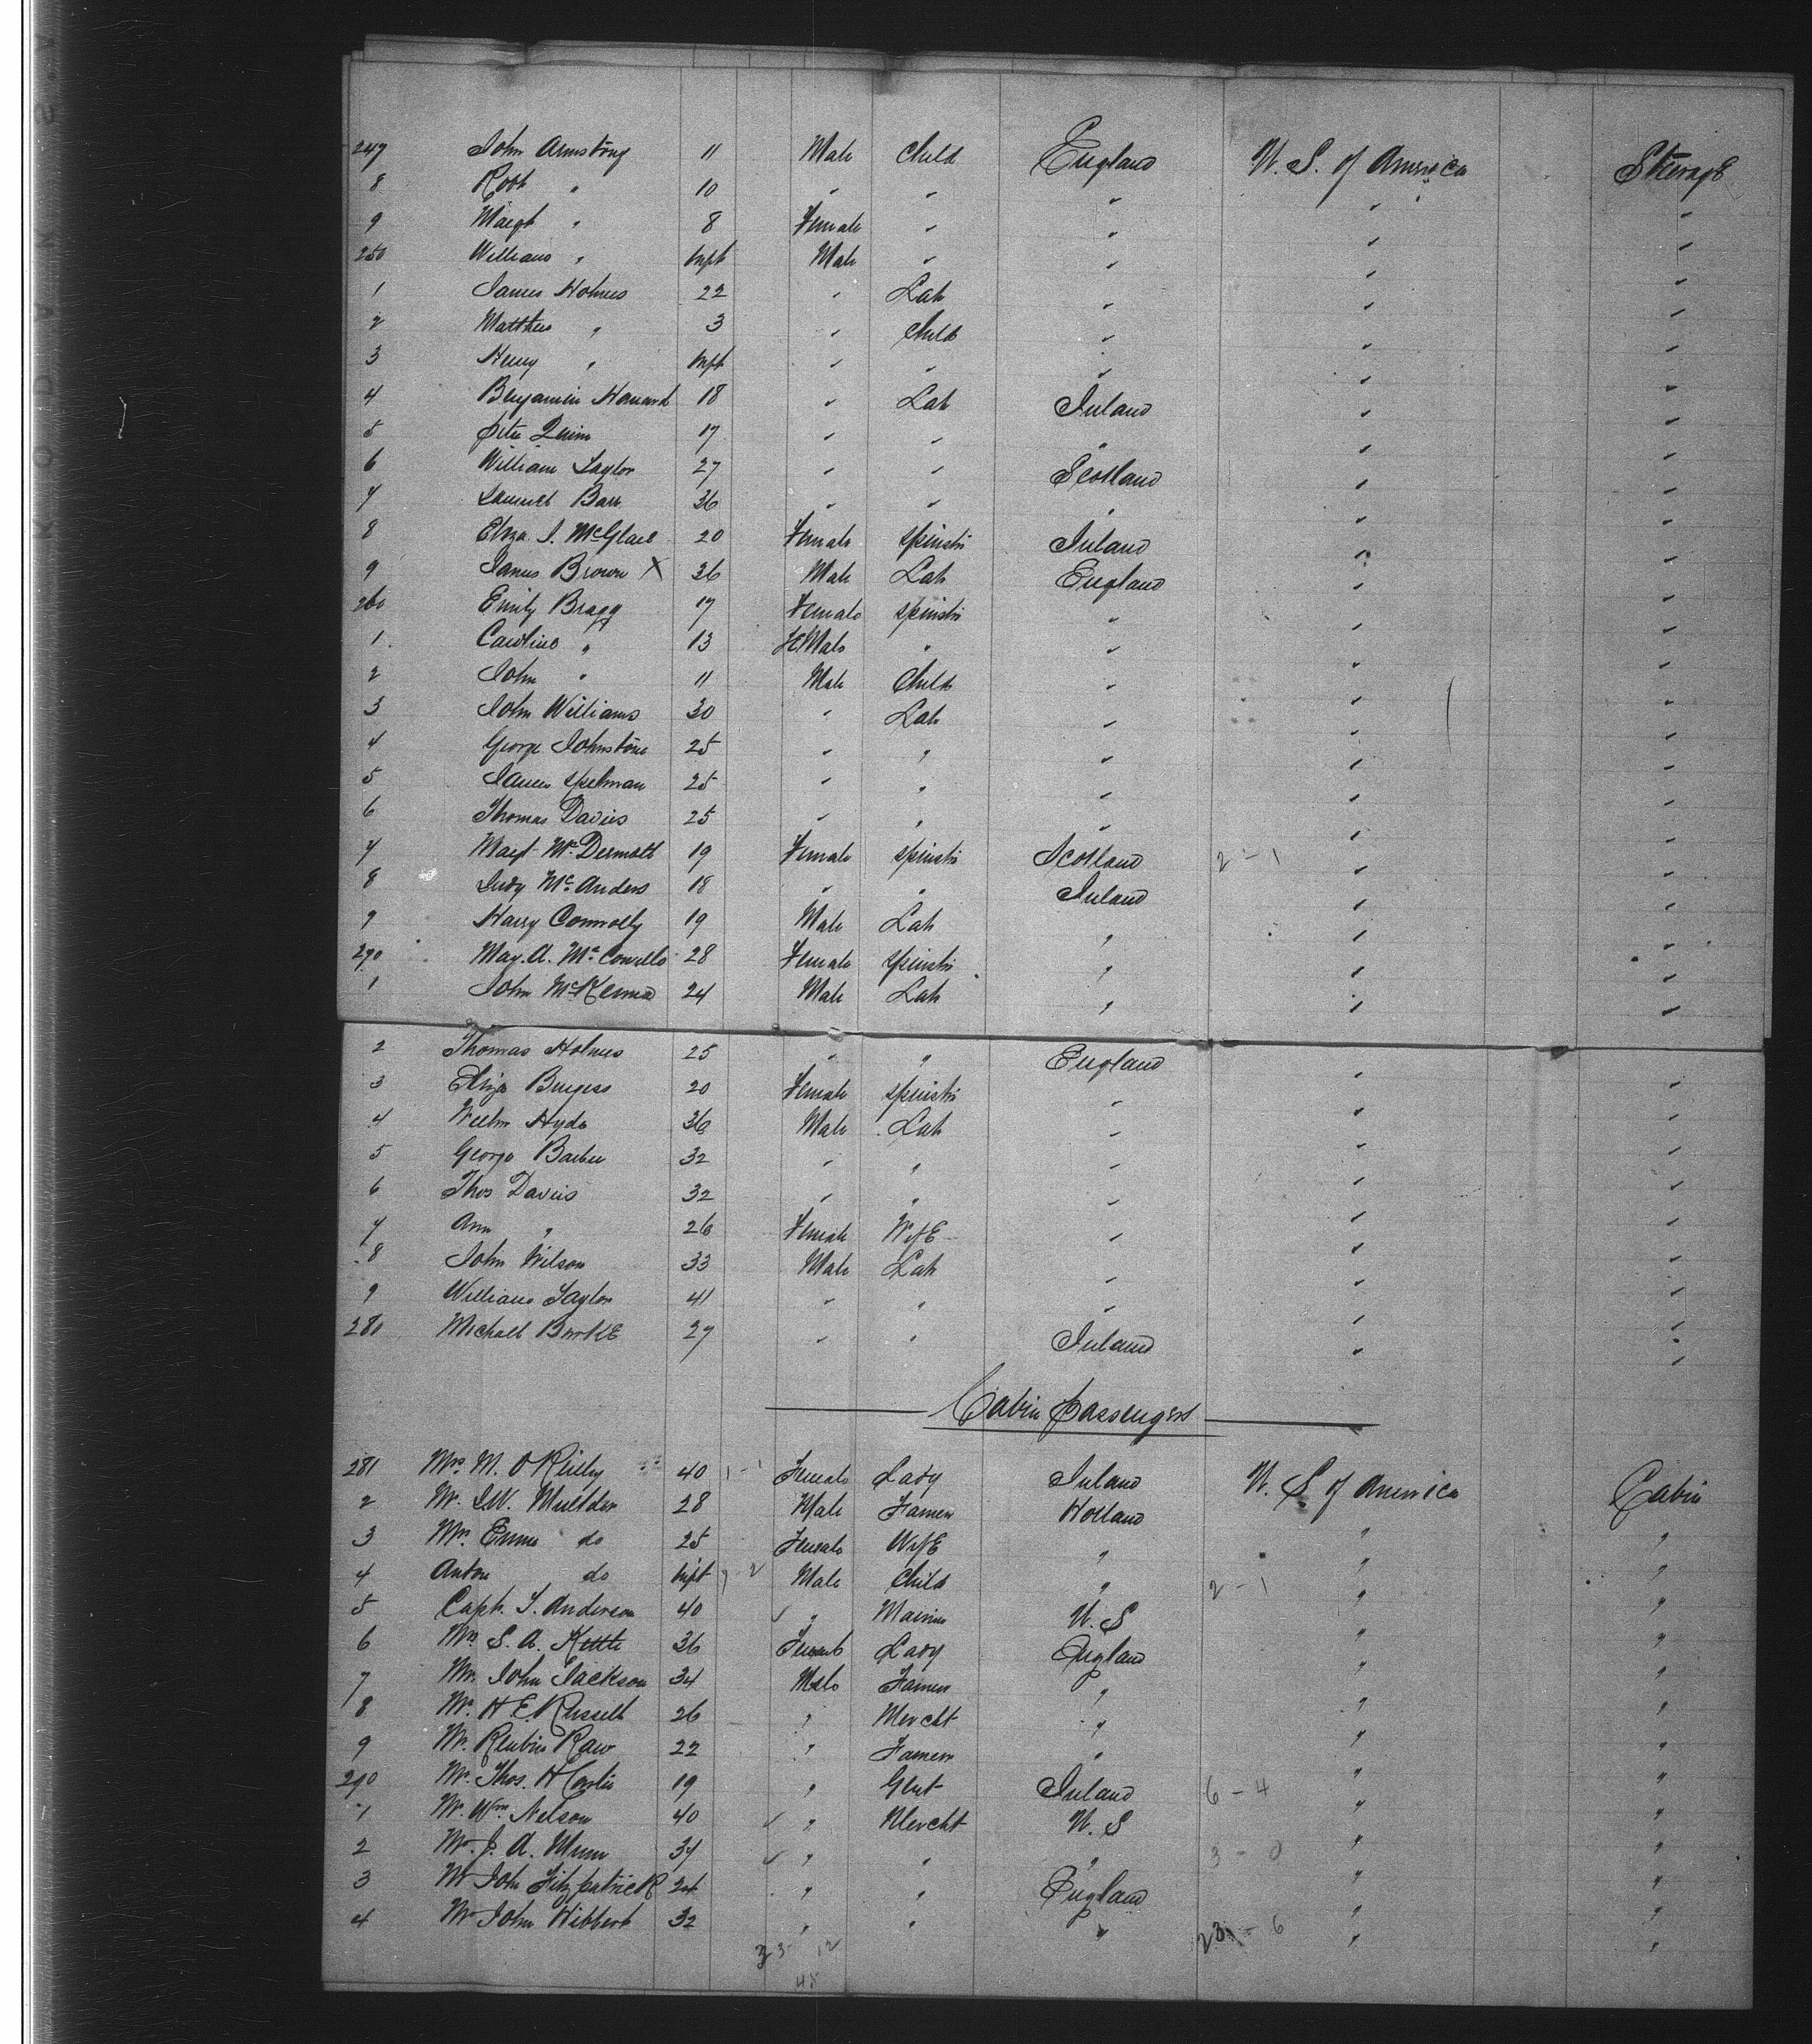 247 John Armstrong 11 Male Child England U. S. of America Steerage
8 Robt " 10 " " " " "
9 Margt " 8 Female " " " "
250 William " Inft Male " " " "
1 James Holmes 22 " Lab " " "
2 Matthew " 3 " Child " " "
3 Henry " Inft " " " " "
4 Benjamin 18 " Lab Ireland " "
5 Peter Quinn 17 " " " " "
6 William Taylor 27 " " Scotland " "
7 Samuel Barr 36 " " " " "
8 Eliza J. 20 Female Spinstr Ireland " "
9 James Brown X 36 Male Lab England " "
260 Emily Bragg 17 Female Spinstr " " "
1 Caroline " 13 FeMale " " " "
2 John " 11 Male Child " " "
3 John Williams 30 " Lab " " "
4 George Johnstone 25 " " " " "
5 James Spelman 25 " " " " "
6 Thomas Davies 25 " " " " "
7 Margt McDermott 19 Female Spinstr Scotland 2 - 1 " "
8 Judy McAnders 18 " " Ireland " "
9 Harry Connolly 19 Male Lab " " "
270 May. A. 28 Female Spinstr " " "
1 John McKenna 24 Male Lab " " "
2 Thomas Holmes 25 " " England " "
3 Eliza Burgess 20 Female Spinstr " " "
4 Willm Hyde 36 Male Lab " " "
5 George Barber 32 " " " " "
6 Thos Davies 32 " " " " "
7 Ann " 26 Female Wife " " "
8 John Wilson 33 Male Lab " " "
9 William Taylor 41 " " " " "
280 Michael Burke 27 " " Ireland " "
Cabin Passengers
281 Mrs. M. O Reilly 40 1 - 1 Female Lady Ireland U. S of America Cabin
2 Mr. J.W. Mulder 28 Male Farmer Holland " "
3 Mrs. Emma do 25 Female Wife " " "
4 Anton do Inft Male Child " 2 - 1 " "
5 Capt. T. Anderson 40 " Mariner U. S " "
6 Mrs S. A. Kettle 36 Female Lady England " "
7 Mr. John Jackson 34 Male Farmer " " "
8 Mr. H. E. Russell 26 " Mercht " " "
9 Mr. Reubin Raw 22 " Farmer " " "
290 Mr. Thos. H 19 " Gent Ireland 6 - 4 " "
1 Mr. Wm. Nelson 40 " Mercht U. S " "
2 Mr. J. A. Munn 37 " " " 3 - 0 " "
3 Mr John Fitzpatrick 24 " " England " "
4 Mr John Hibbert 32 " " " " "
33 - 12
45